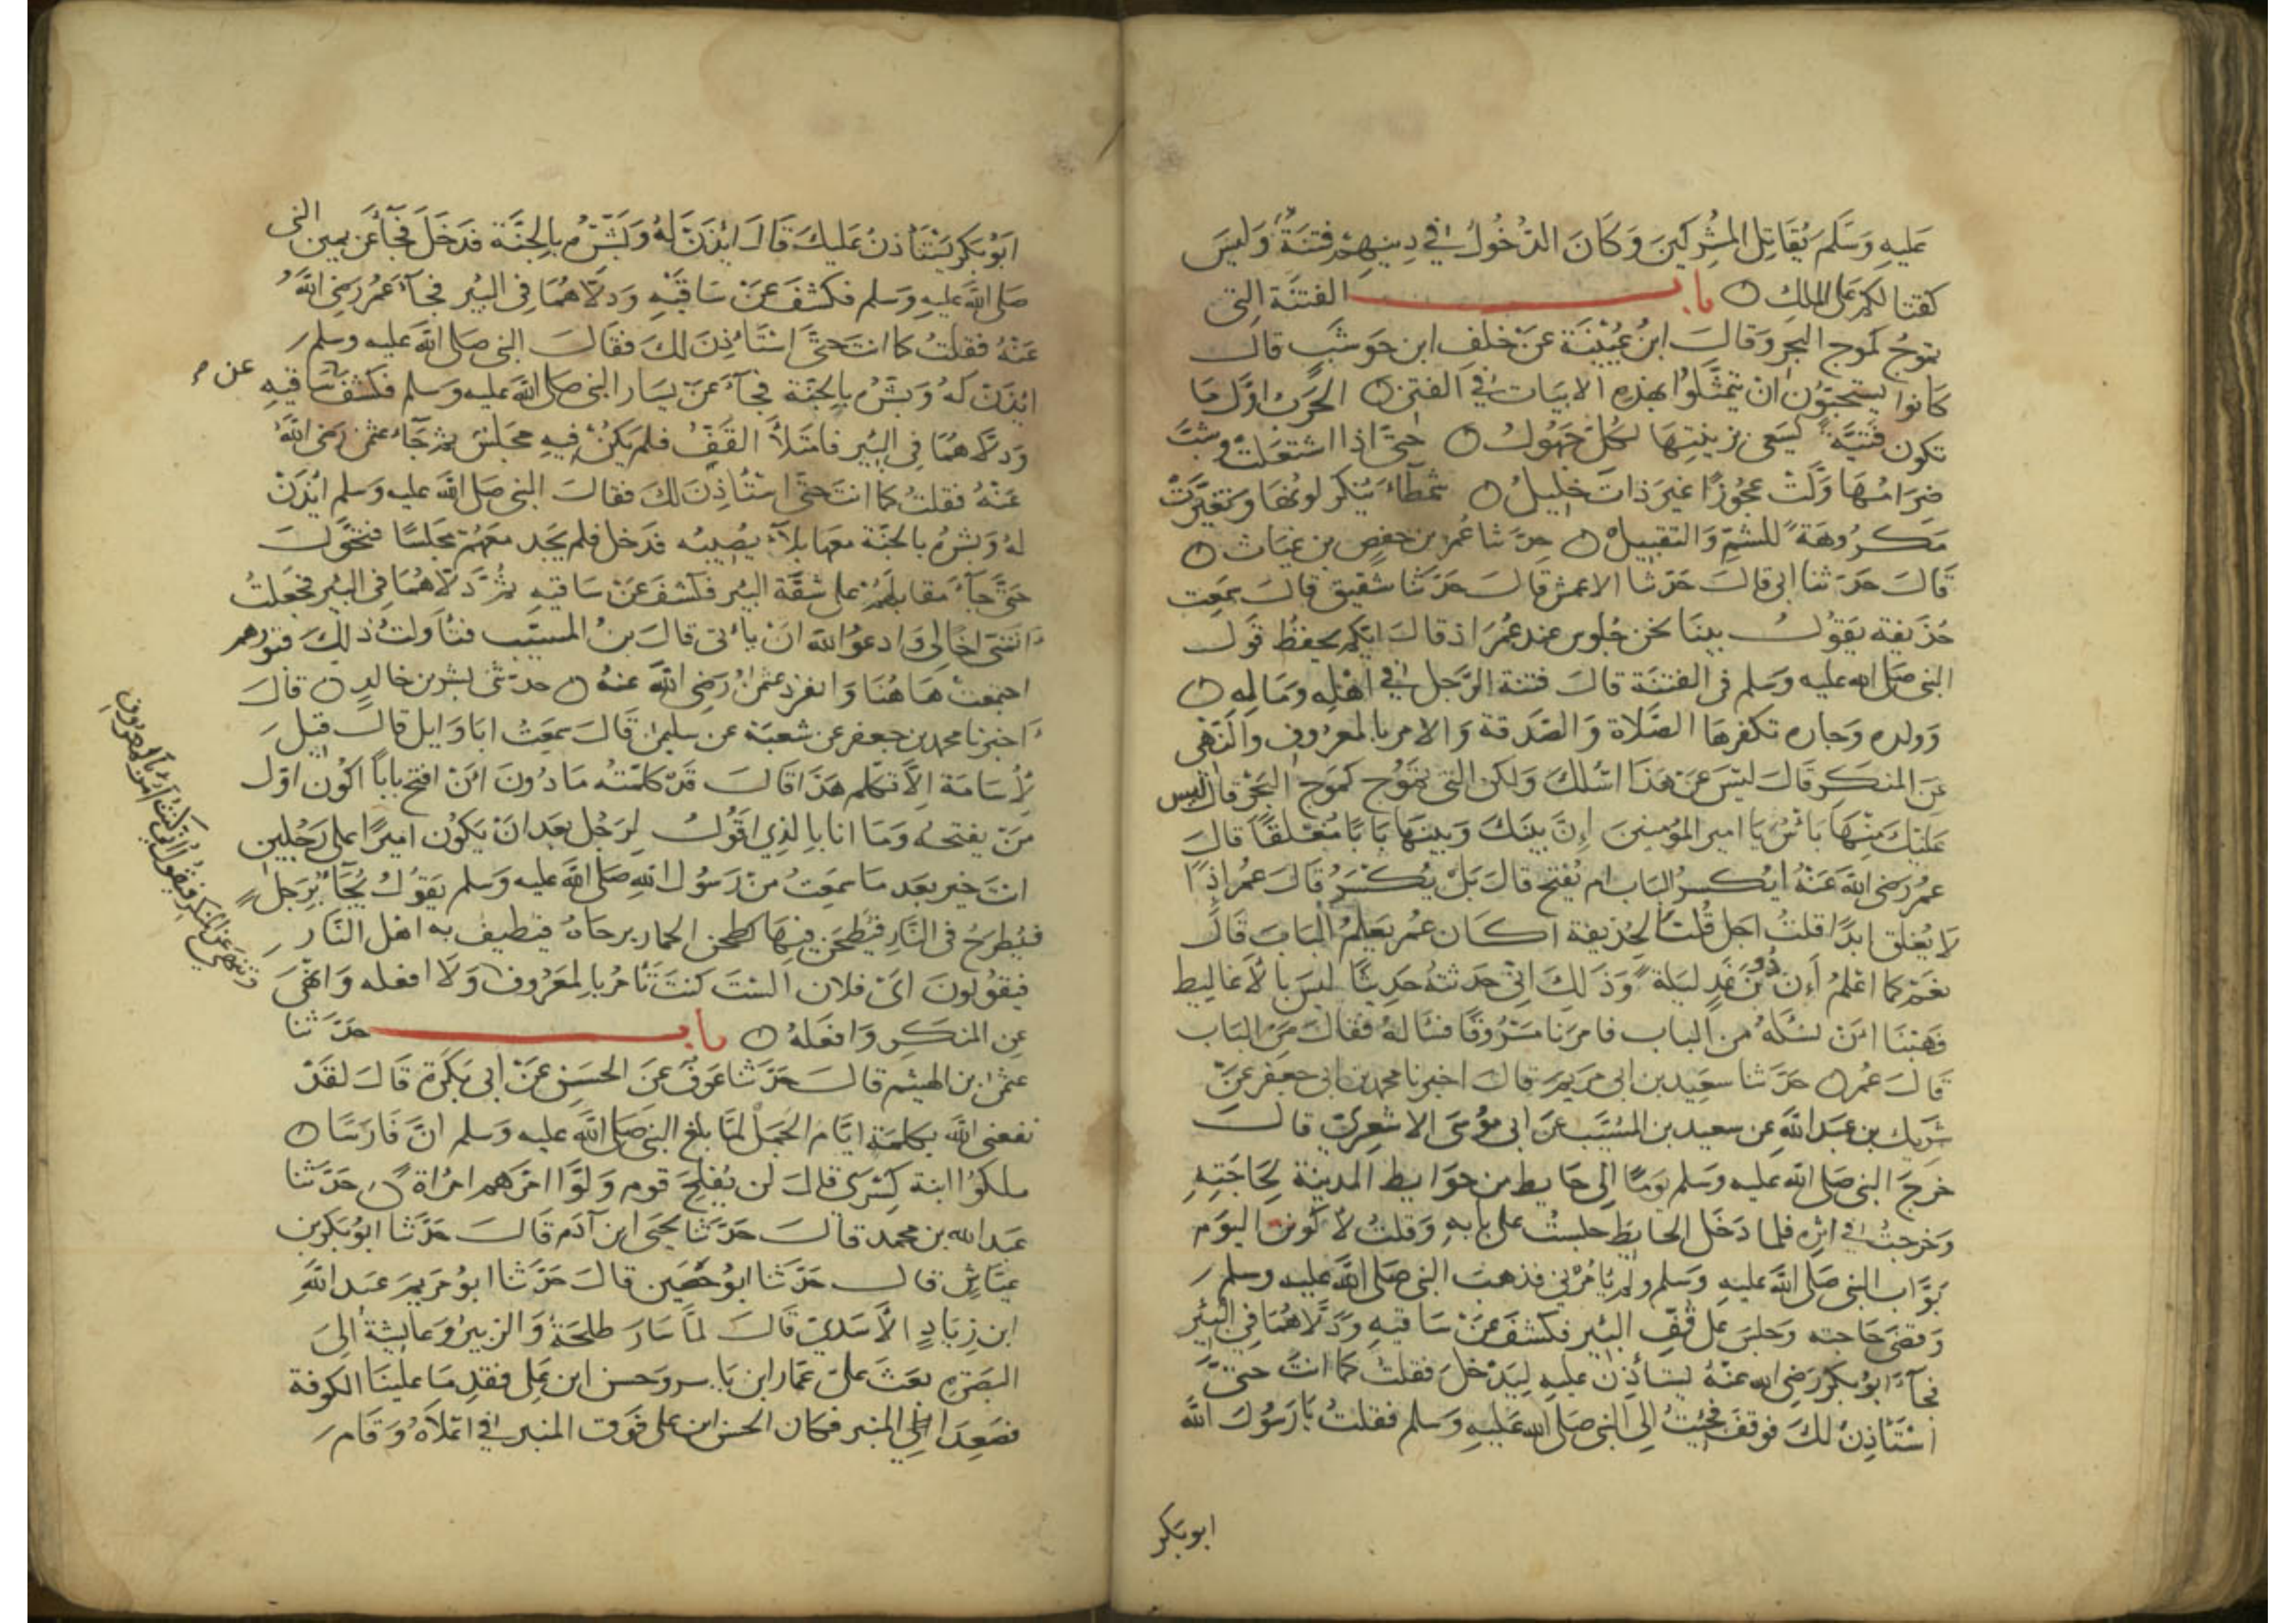 عَليهِ وَسَلَّمَ يُقَاتِل المشْرِكينَ وَكَانَ الدّخُولُ في دِينِهِمْ فِتنَةً وَليسَ
كقتالكم على الملك ○ باب الفتنَة التي
تموجُ كموج البحر وَقالَ ابنُ عُيَيْنَة عَنْ خلَف ابن حَوشَبٍ قال
كانوا يستحبّون ان يتمثّلوا بهذهِ الابيَات في الفتن ○ الحَرب اوّل مَا
تكون فتيَّةً تسعى بزينتِهَا لكلّ جَهُولُ ○ حتىّ اذا اشتعَلت وشبّ
ضِرَامُهَا وَلّتْ عجُوزًا غيرَ ذات خَليلُ ○ شمطَاءَ يُنكر لونهَا وَتغيّرتْ
مَكرُوهَةً للشّمِّ وَالتقبيل ○ حدّثنا عُمرُ بن حَفصٍ بن غيَاث ○
قَالَ حَدَثنا ابى قالَ حَدّثنا الاعمش قالَ حَدّثنَا شقيق قالَ سمعت
حُذيفة يَقوُلُ بينَا نحن جُلوس عند عُمَر اذ قالَ ايّكم يحفظ قول
النبى صَلى الله عليه وسَلم فى الفتنَة قالَ فتنة الرّجل في اهْلهِ وَمَالهِ ○
وَولده وَجاره تكفرهَا الصّلاة وَالصّدقة وَالامر بالمعرُوف وَالنّهى
عَن المنكَر قالَ ليْسَ عَنْ هَذا اسْئلكَ وَلكن التى تموُج كموَج البَحْر قال ليس
عَليْكَ مِنْهَا بَاسٌ يَا امير المؤمِنين إنّ بينَكَ وَبينهَا بَابًا مُغْلقًا قالَ
عمُر رَضى الله عَنْهُ ايُكسرُ البَاب ام يُفتح قالَ بَلْ يُكْسَرُ قالَ عمُر اذًا
لا يُغلق ابدًا قلتُ اجل قُلنَا لحُذيفة اكانَ عمُر يَعلمُ البابَ قالَ
نعَمْ كما اعْلمُ أن دُونَ غَدٍ ليَلة وَذَلكَ انّى حَدثتهُ حَدِيثًا ليسَ بالأغاليط
فَهبْنَا انْ نسْئلهُ من الباب فامرَنا مَسْرُوقًا فسَالهُ فقالَ مَنْ البَاب
قَالَ عُمر ○ حَدّثنا سعِيد بن ابى مَريَم قالَ اخبرنا محمد بن ابى جعفر عَنْ
شَرِيك بن عَبد الله عن سعيد بن المسَيّب عَنْ ابى مُوْسَى الاشعَرِىّ قالَ
خرَجَ النبى صَلى الله عليه وسَلم يَومًا إلى حَايط من حوَايط المدينَة لحَاجَتِهِ
وَخرجتُ في اثره فلما دَخَل الحايط جلستُ على بابهِ وَقلتُ لأكونن اليوَم
بَوّاب النبى صَلى الله عليهِ وَسَلم ولم يَامُرْنى فذهبَ النبى صَلى الله عليه وسلم
وَقضَى حَاجته وَجلسَ على قفِّ البئير فكشفَ عَنْ سَاقيهِ وَدلّاهُمَا في البئير
فجآءَ ابوُبكر رَضى الله عنْهُ يستأذِن عليه ليَدْخلَ فقلتُ كما انتَ حَتىّ
اسْتَأذِنُ لكَ فوقف فجئتُ إلى النبى صَلى الله عَليهِ وَسَلم فقلتُ يَا رَسُولَ الله
ابوبكر
ابَوُبكر يَسْتَأذنُ عَليكَ قَالَ ائذَنْ لهُ وَبَشّرْهُ بالِجنّة فدَخَلَ فجآءَ عَن يمين النبى
صَلى الله عليهِ وَسَلم فكشفَ عَنْ سَاقَيْهِ وَدلّاهُمَا فى البئير فجآءَ عمُرُ رَضى الله
عَنْهُ فقلتُ كما انتَ حَتىَّ استَاذِنَ لكَ فقالَ النبى صَلى الله عليه وسلم
ائذَنْ لهُ وَبشّرْهُ بالجَنّة فجآءَ عَنْ يسَار النبى صَلى الله عليه وسَلم فكشفَ سَاقيهِ
عن
وَدلّاهُمَا فى البئير فامتَلأَ القَفُّ فلم يَكنْ فيهِ مجَلسٌ ثم جَآءَ عثمن رَضى الله
عَنْهُ فقلتُ كما انتَ حتىّ استَأذِنَ لكَ فقالَ النبى صَلى الله عليه وَسلم ائذَنْ
لهُ وَبشّرْهُ بالجَنّة معهَا بلآءٌ يصُيبُه فدَخل فلم يجَد معَهُمْ مجَلسًا فتحَوّلَ
حتىّ جآءَ مقابلَهُمْ على شفَّة البئر فكشفَ عَنْ سَاقيهِ ثمّ دَلّاهُمَا فى البئر فجعَلتُ
اتمنّى اخًا لى وَادعوُ الله انْ ياتى قالَ بنُ المسيّب فتأولتُ ذلِكَ قبورهم
اجتمعتْ هَاهُنَا وَانفرَد عثمنُ رَضى الله عنهُ ○ حدّثنى بشر بن خالدٍ ○ قالَ
اخبرنا محمد بن جعفر عن شعبَة عن سليمن قَالَ سمعتُ ابَا وَايل قالَ قيلَ
لِأسَامَة ألاَ تكلم هَذا قالَ قدْ كلمتهُ مَا دُونَ انْ افتح باباً اكوُن اوّل
مَنْ يفتحهُ وَمَا انا بالذى اقَوُلُ لِرَجُل بعَد انْ يَكوُن اميرًا على رَجُلين
انتَ خير بعَد مَا سمَعتُ مِنْ رَسُول الله صَلى الله عليه وَسَلم يَقوُلُ يُجَآءُ برَجل
فيُطرحُ فى النّار فيَطحَن فيهَا كطحن الحمار برحَاهُ فيطيف به اهْل النّار
فيقوُلونَ اىْ فلان السْتَ كنتَ تأمُر بالمعَرُوف وَلا افعله وَانْهىَ
وتنهى عن المنكر فيقول انى كنت آمر بالمعروف
عن المنكَر وَافعَلهُ ○ باب حَدّثنا
عثمن بن الهيثم قالَ حَدّثنا عَوفٌ عَنَ الحسَن عَنْ ابى بَكرَة قَالَ لقَدْ
نفعنى الله بكلمَة ايّام الجَمل لمّا بلغ النبى صَلى الله عليه وسَلم انّ فَارسًا ○
ملكوُا ابنة كسْرَى قالَ لن يُفلحَ قوم وَلّوْا امْرَهم امْرَاة ○ حَدّثنا
عَبد الله بن محمد قالَ حَدّثَنا يحَيَى ابن آدَم قَالَ حَدّثنَا ابوُبَكر بن
عيّاشٍ قالَ حَدّثنا ابوُحَصَين قالَ حَدّثنا ابوُ مَريَم عَبد الله
ابن زِيَادٍ الأسَدىّ قَالَ لمّا سَارَ طلحَةُ وَالزبيرُ وَعَايشةُ الىَ
البَصَرة بعَثَ علىّ عَمّار ابن يَاسر وَحسن ابن عَلى فقدِمَا علينَا الكوفة
فصَعِدَا إلى المنبر فكان الحسَن ابن على فوَق المنبر في اعْلاهُ وَقَامَ